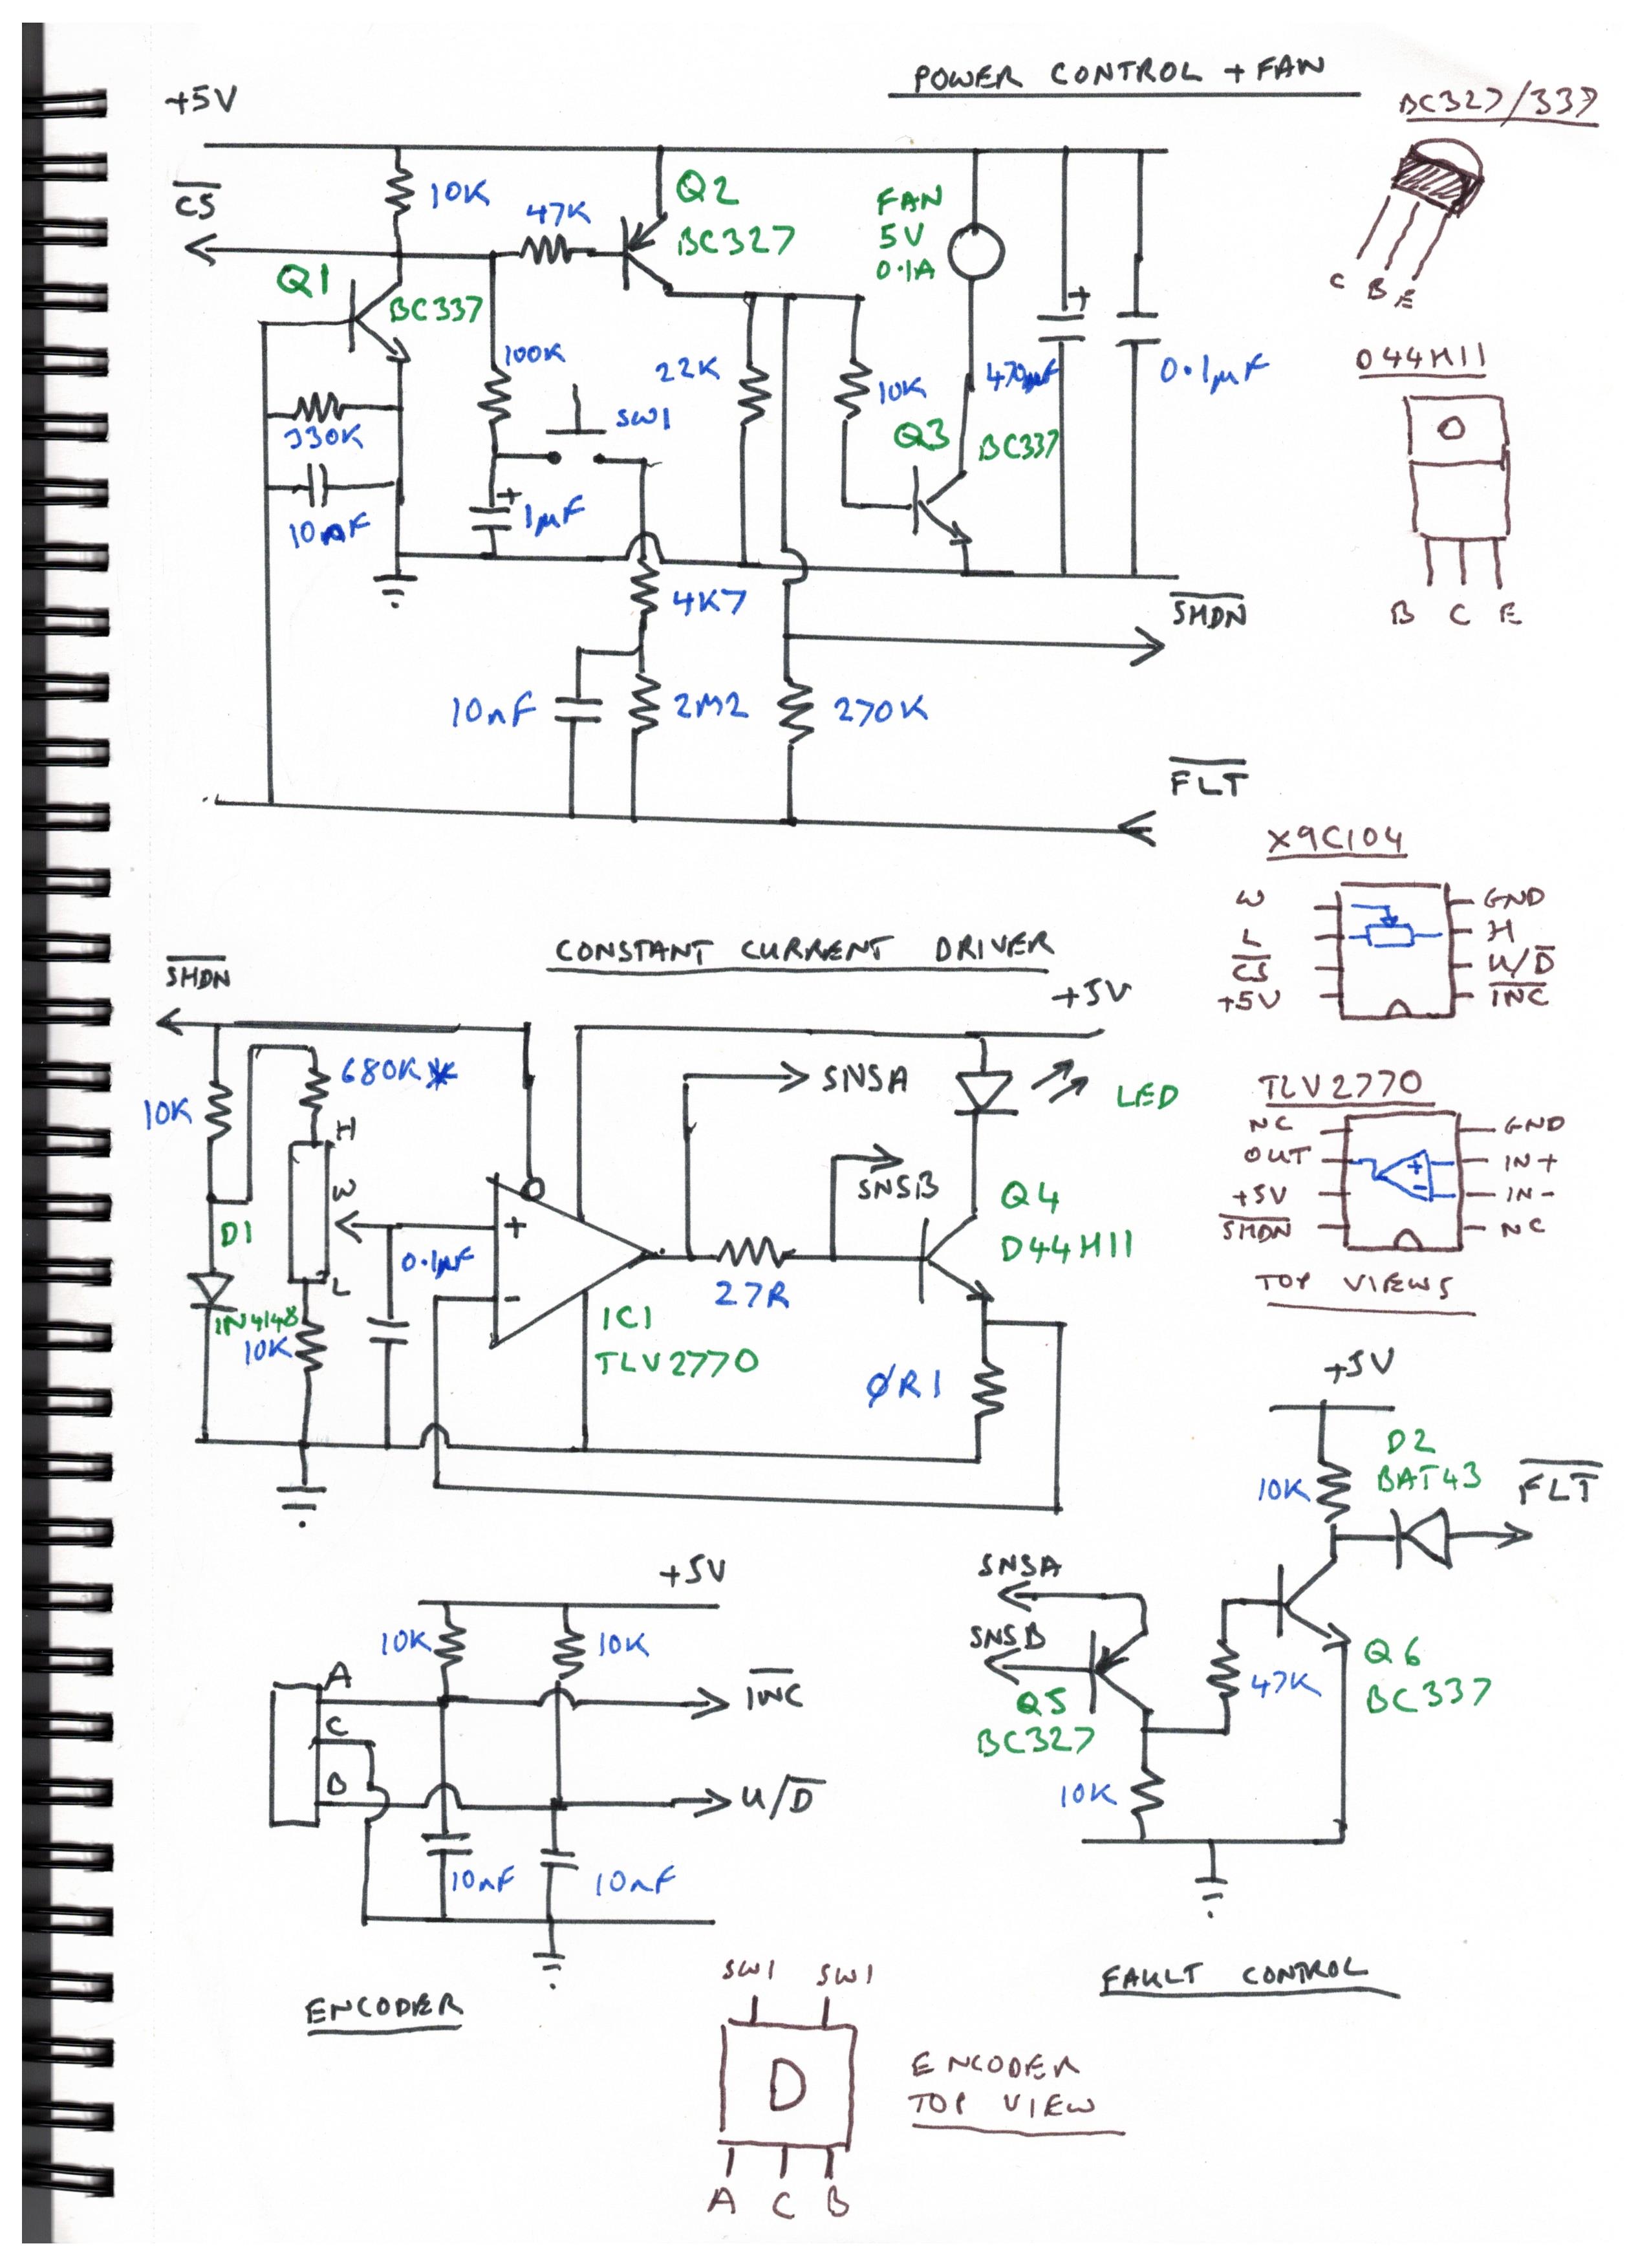 POWER CONTROL + FAN
+5V
BC327/337
C̅S̅
10K
47K
Q2
BC327
FAN
5V
0.1A
Q1
BC337
C B E
100K
22K
10K
470µF
0.1µF
D44H11
SW1
330K
Q3
BC337
10nF
+
1µF
+
B C E
4K7
S̅H̅D̅N̅
10nF
2M2
270K
F̅L̅T̅
X9C104
W
L
C̅S̅
+5V
GND
H
U/D̅
I̅N̅C̅
CONSTANT CURRENT DRIVER
S̅H̅D̅N̅
+5V
680K*
10K
H
W
L
SNSA
LED
SNSB
TLV2770
NC
OUT
+5V
S̅H̅D̅N̅
GND
IN+
IN-
NC
+
-
TOP VIEWS
D1
1N4148
10K
0.1µF
+
-
27R
Q4
D44H11
IC1
TLV2770
ØR1
+5V
10K
D2
BAT43
F̅L̅T̅
SNSA
SNSB
Q5
BC327
47K
Q6
BC337
10K
FAULT CONTROL
+5V
10K
10K
A
C
B
I̅N̅C̅
U/D̅
10nF
10nF
ENCODER
SW1 SW1
D
A C B
ENCODER
TOP VIEW